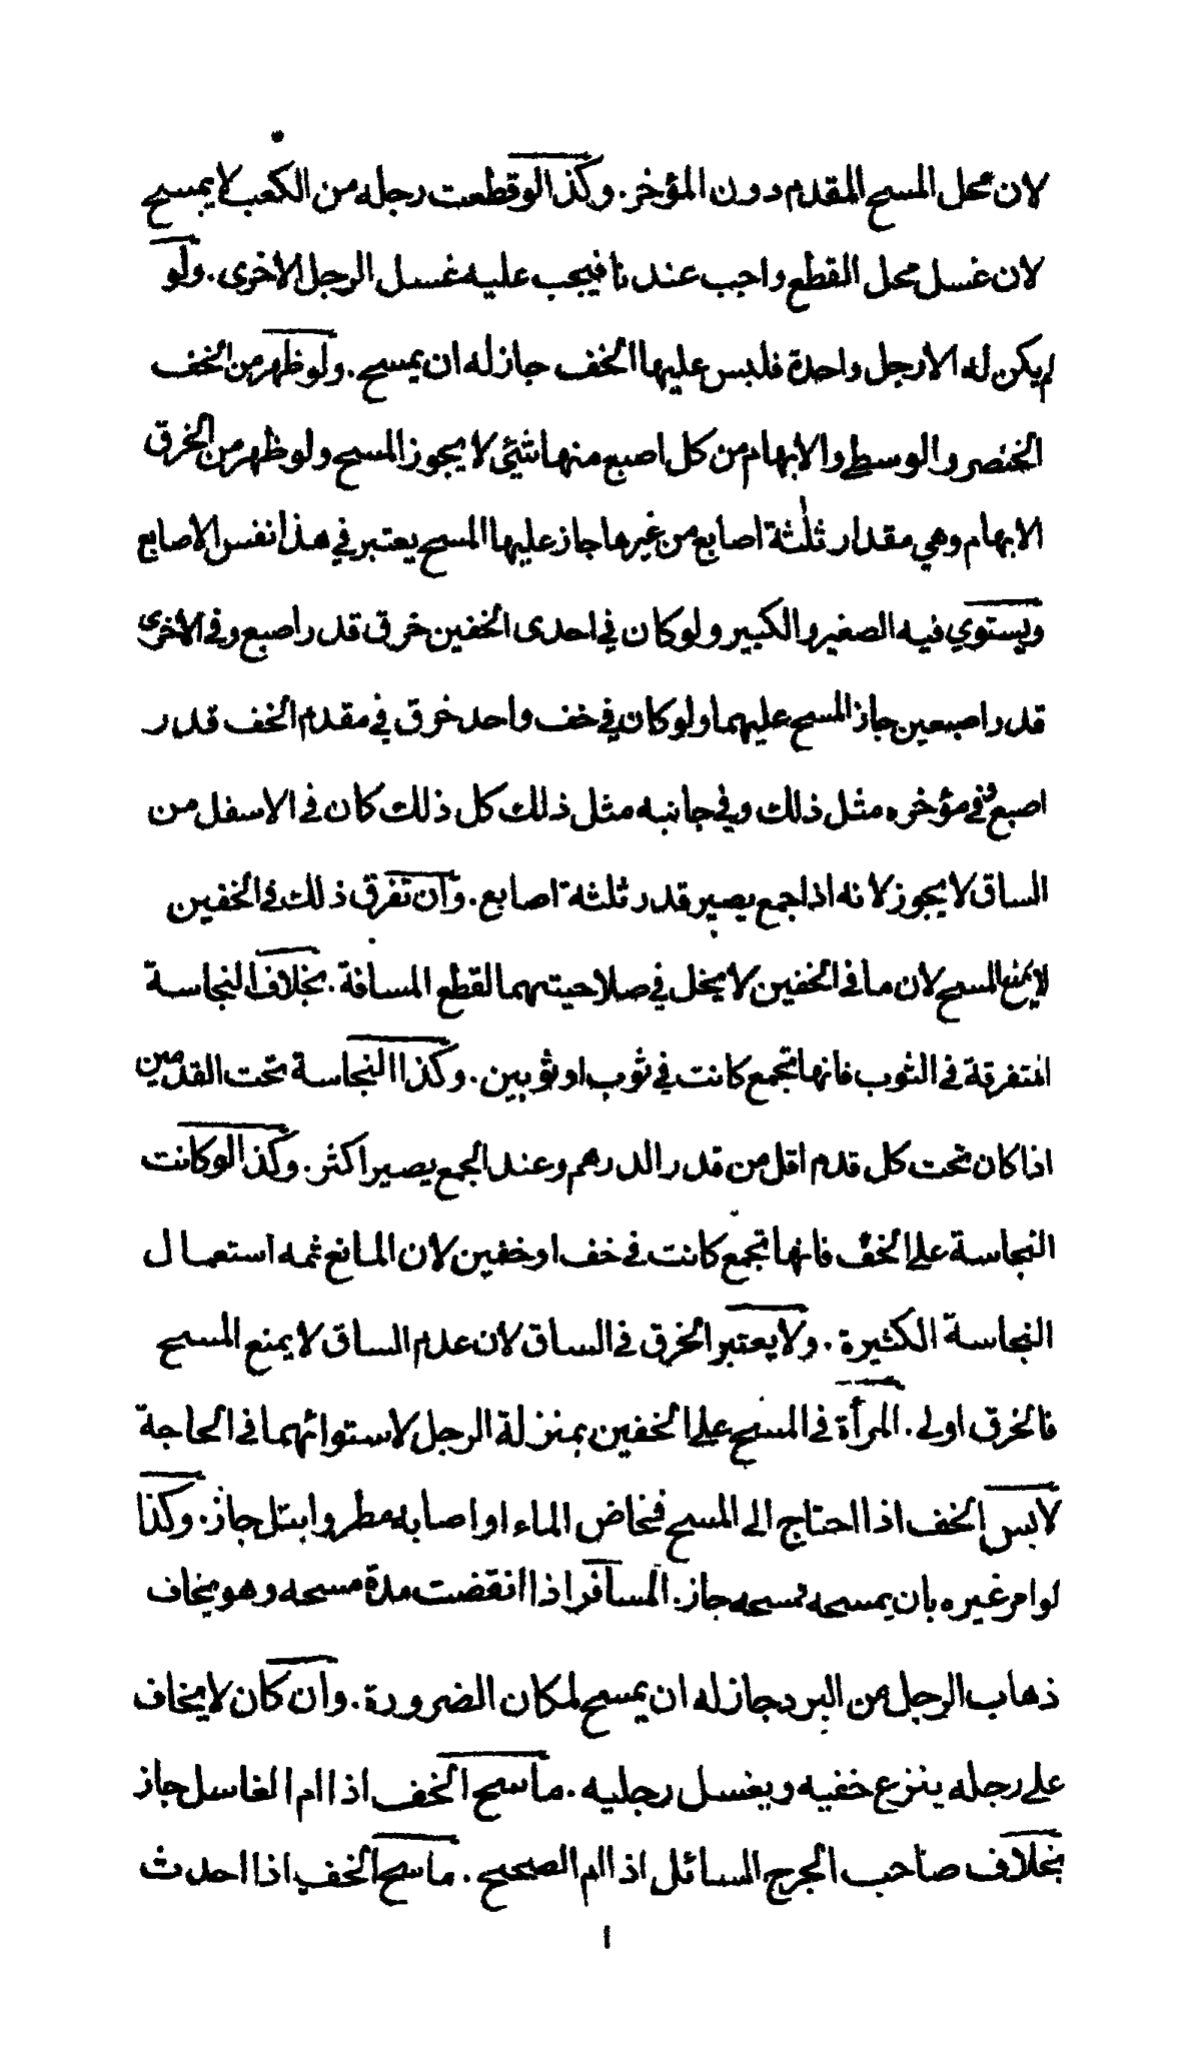 لان محل المسح المقدم دون المؤخر. وكذا لو قطعت رجله من الكعب لا يمسح
لان غسل محل القطع واجب عندنا فيجب عليه غسل الرجل الاخرى. ولو
لم يكن له الا رجل واحدة فلبس عليها الخف جاز له ان يمسح. ولو ظهر من الخف
الخنصر والوسطى والابهام من كل اصبع منها شئي لا يجوز المسح ولو ظهر من الخرق
الابهام وهي مقدار ثلٰثة اصابع من غيرها جاز عليها المسح يعتبر في هذا نفس الاصابع
ويستوي فيه الصغير والكبير ولو كان في احدى الخفين خرق قدر اصبع وفي الأخرى
قدر اصبعين جاز المسح عليهما ولو كان في خف واحد خرق في مقدم الخف قدر
اصبع وفي مؤخره مثل ذلك وفي جانبه مثل ذلك كل ذلك كان في الاسفل من
الساق لا يجوز لانه اذا جمع يصير قدر ثلثة اصابع. وان تفرق ذلك في الخفين
لا يمنع المسح لان ما في الخفين لا يخل في صلاحيتهما لقطع المسافة. بخلاف النجاسة
المتفرقة في الثوب فانها تجمع كانت في ثوب او ثوبين. وكذا النجاسة تحت القدمين
اذا كان تحت كل قدم اقل من قدر الدرهم وعند الجمع يصير اكثر. وكذا لو كانت
النجاسة على الخف فانها تجمع كانت في خف او خفين لان المانع ثمه استعمال
النجاسة الكثيرة. ولا يعتبر الخرق في الساق لان عدم الساق لا يمنع المسح
فالخرق اولى. المرأة في المسح على الخفين بمنزلة الرجل لاستوائهما في الحاجة
لابس الخف اذا احتاج الى المسح فخاض الماء او اصابه مطر وابتل جاز. وكذا
لو امر غيره بان يمسحه فمسحه جاز. المسافر اذا انقضت مدة مسحه وهو يخاف
ذهاب الرجل من البرد جاز له ان يمسح لمكان الضرورة. وان كان لا يخاف
على رجله ينزع خفيه ويغسل رجليه. ماسح الخف اذا ام الغاسل جاز
بخلاف صاحب الجرح السائل اذا ام الصحيح. ماسح الخف اذا احدث
ا